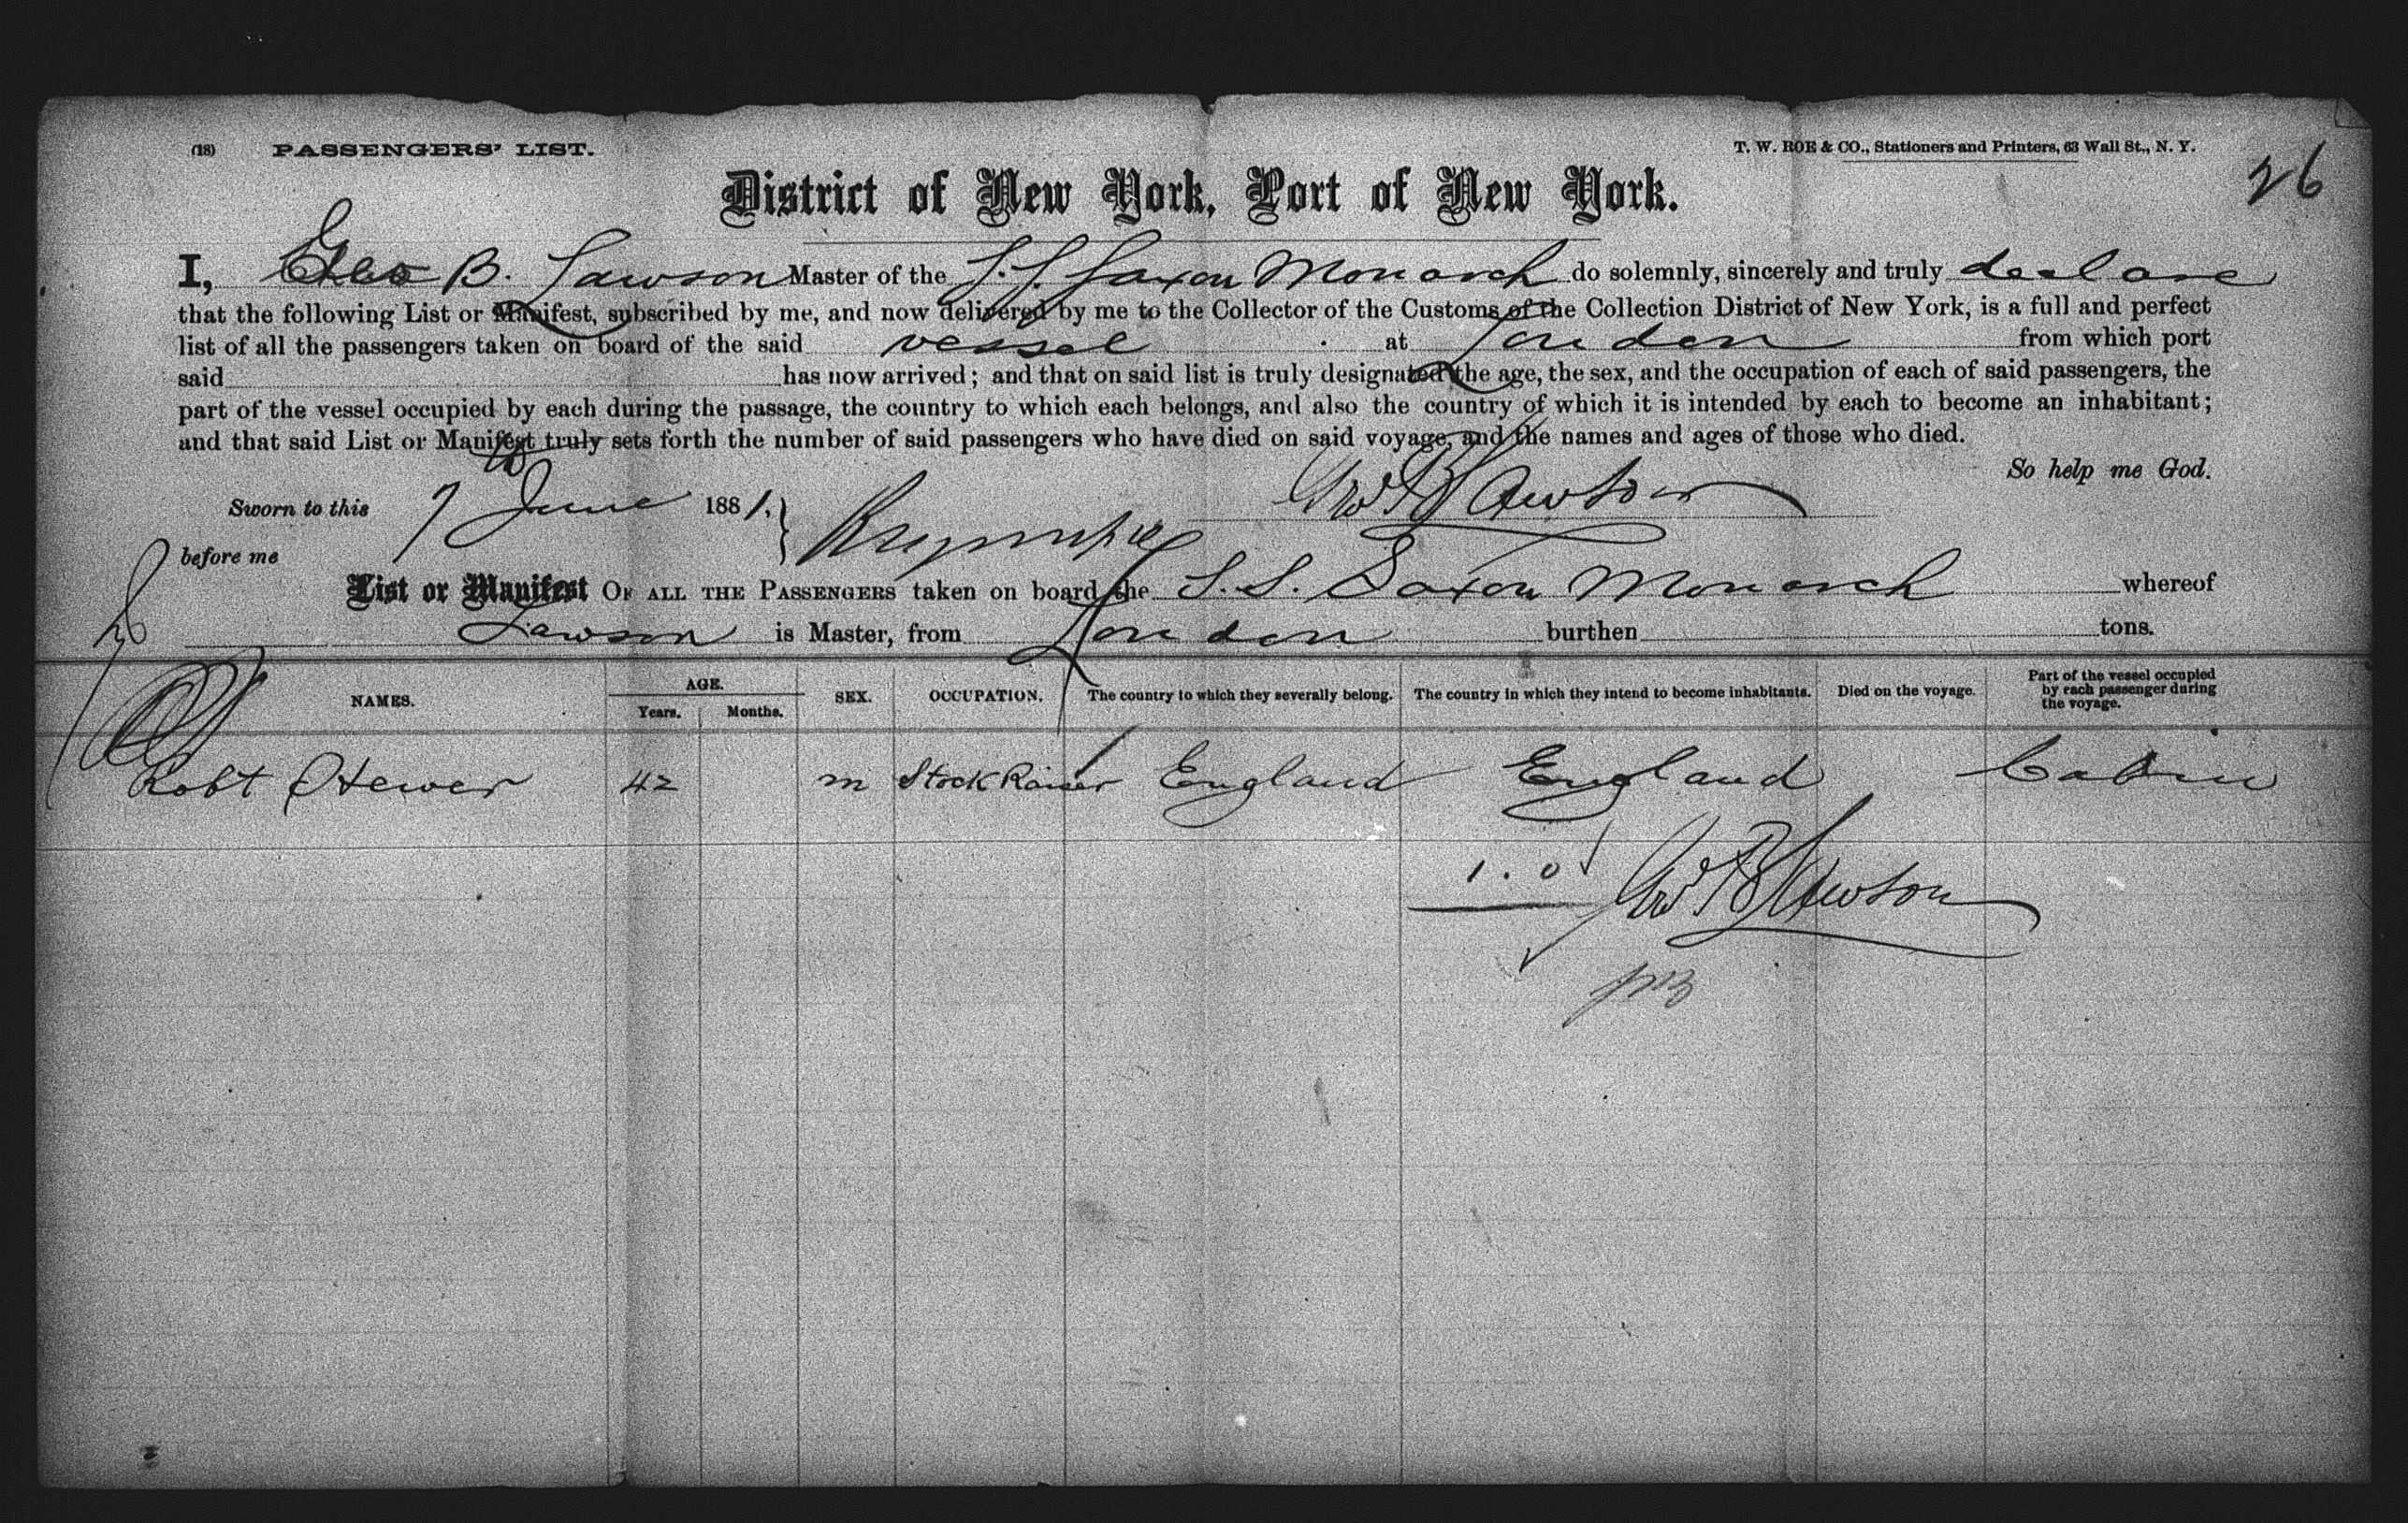 (18) PASSENGERS' LIST.
T. W. ROE & CO., Stationers and Printers, 63 Wall St., N. Y.
26
District of New York, Port of New York.
I, Geo B. Lawson Master of the S.S. Saxon Monarch do solemnly, sincerely and truly declare
that the following List or Manifest, subscribed by me, and now delivered by me to the Collector of the Customs of the Collection District of New York, is a full and perfect
list of all the passengers taken on board of the said vessel at London from which port
said has now arrived; and that on said list is truly designated the age, the sex, and the occupation of each of said passengers, the
part of the vessel occupied by each during the passage, the country to which each belongs, and also the country of which it is intended by each to become an inhabitant;
and that said List or Manifest truly sets forth the number of said passengers who have died on said voyage, and the names and ages of those who died.
So help me God.
Sworn to this 7th June 1881. Geo B Lawson
before me
List or Manifest OF ALL THE PASSENGERS taken on board the S.S. Saxon Monarch whereof
Lawson is Master, from London burthen tons.
NAMES. AGE. Years. Months. SEX. OCCUPATION. The country to which they severally belong. The country in which they intend to become inhabitants. Died on the voyage. Part of the vessel occupied by each passenger during the voyage.
Robt Hewer 42 m Stock Raiser England England Cabin
1.0
Geo B Lawson